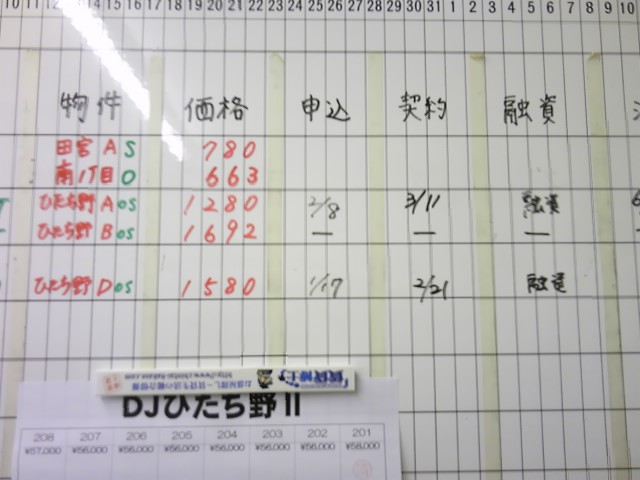 10 11 12 13 14 15 16 17 18 19 20 21 22 23 24 25 26 27 28 29 30 31 1 2 3 4 5 6 7 8 9 10
物件 価格 申込 契約 融資
田宮 A S 780
南1丁目 O 663
ひたち野 A OS 1280 2/8 3/11 融資
ひたち野 B OS 1692 — — —
ひたち野 D OS 1580 1/17 2/21 融資
DJひたち野Ⅱ
208 207 206 205 204 203 202 201
¥57,000 ¥56,000 ¥56,000 ¥56,000 ¥56,000 ¥56,000 ¥56,000 ¥58,000